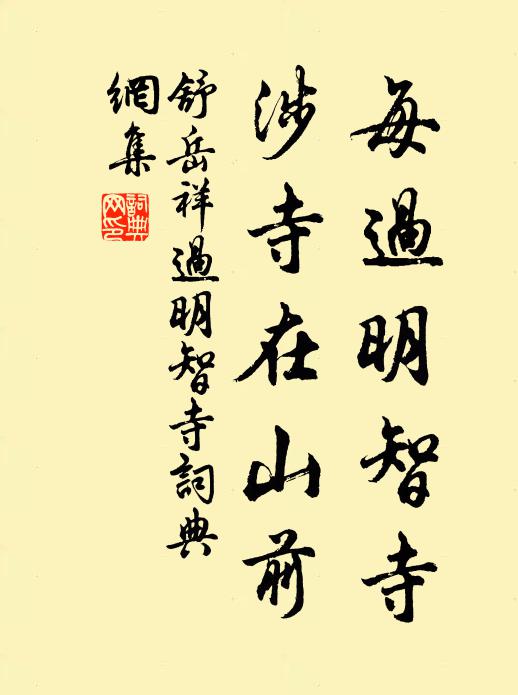 每過明智寺
涉寺在山前
舒岳祥過明智寺詞典
網集
詞典
网印